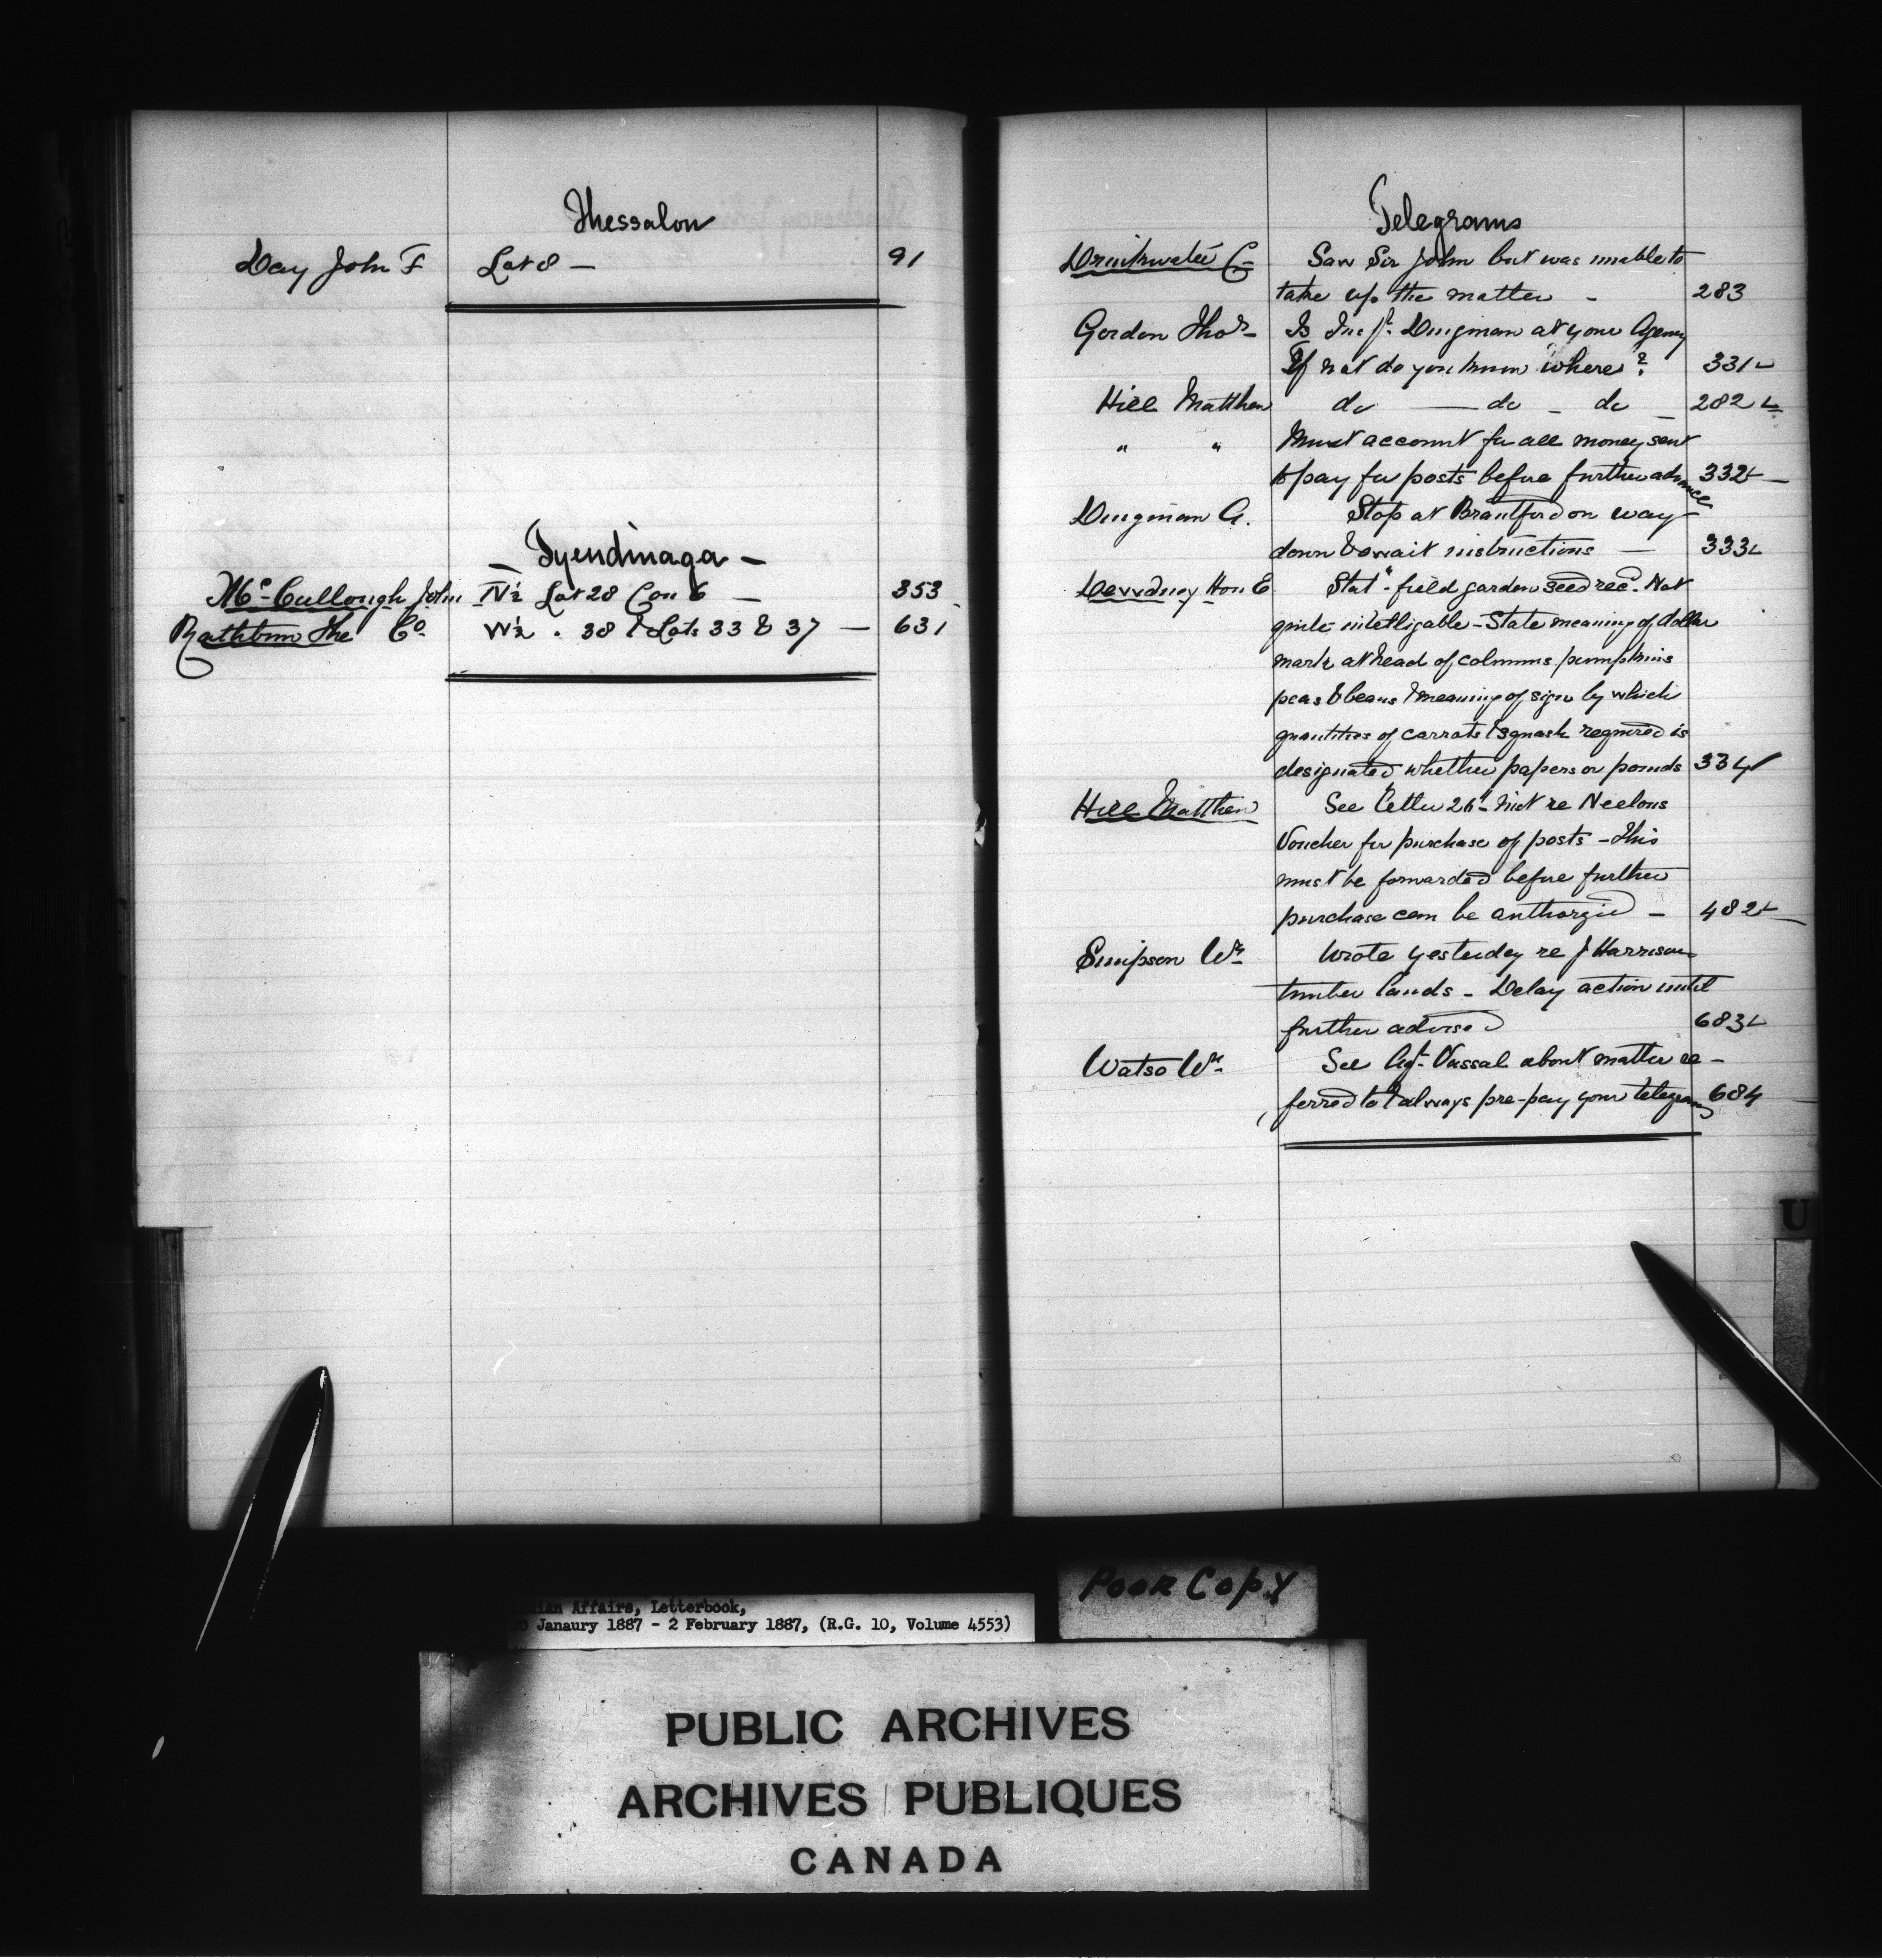 Thessalon
Day John F Lot 8 — 91
Tyendinaga —
McCullough John N½ Lot 28 Con 6 — 353
Rathbun The Co. W½ . 38 & Lots 33 & 37 — 631
Telegrams
Drinkwater C— Saw Sir John but was unable to
take up the matter - 283
Gordon Thos— Is Inspt. Dingman at your Agency
If not do you know where? 331
Hill Matthew do — do - do - 282
" " Must account for all money sent
to pay for posts before further advance 332
Dingman A. Stop at Brantford on way
down & await instructions — 333
Dewdney Hon E Stat - field garden seed recd. Not
quite intelligable - State meaning of dollar
mark at head of columns pumpkins
peas & beans & meaning of sign by which
quantities of carrots & squash required is
designated whether papers or pounds 334
Hill Matthew See letter 26 inst re Neelons
Voucher for purchase of posts - This
must be forwarded before further
purchase can be authorzied - 482
Simpson Wm Wrote yesterday re J Harrison
timber lands - Delay action until
further advised 683
Watso Wm See Agt. Vassal about matter re-
ferred to & always pre-pay your telegrams 684
U
Poor Copy
ian Affairs, Letterbook,
Janaury 1887 - 2 February 1887, (R.G. 10, Volume 4553)
PUBLIC ARCHIVES
ARCHIVES PUBLIQUES
CANADA